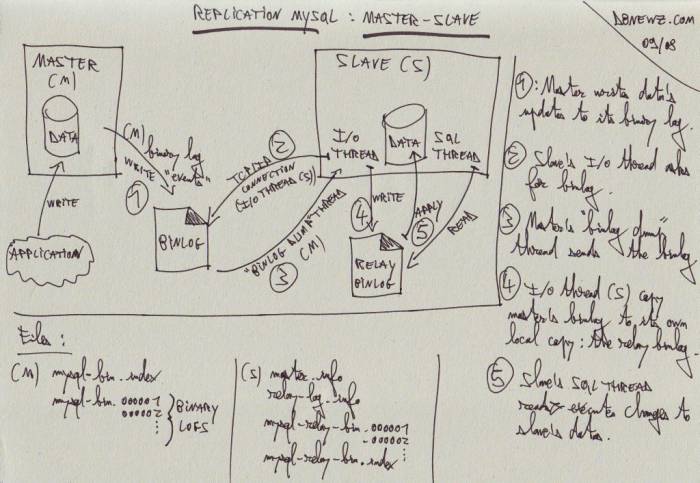 REPLICATION MYSQL : MASTER-SLAVE
DBNEWZ.COM
09/08
MASTER
(M)
DATA
WRITE
APPLICATION
(M)
binary log
WRITE "events"
1
BINLOG
2
TCP/IP
CONNECTION
(I/O THREAD (S))
"BINLOG DUMP" THREAD
(M)
3
SLAVE (S)
I/O
THREAD
DATA
SQL
THREAD
4
WRITE
5
APPLY
READ
RELAY
BINLOG
1 : Master writes data's
updates to its binary log.
2 Slave's I/O thread asks
for binlog.
3 Master's "binlog dump"
thread sends the binlog
4 I/O thread (S) copy
master's binlog to its own
local copy : the relay binlog.
5 Slave's SQL THREAD
reads execute changes to
slave's datas.
Files :
(M) mysql-bin.index
mysql-bin.000001
000002
BINARY
LOGS
(S) master.info
relay-log.info
mysql-relay-bin.000001
-000002
mysql-relay-bin.index